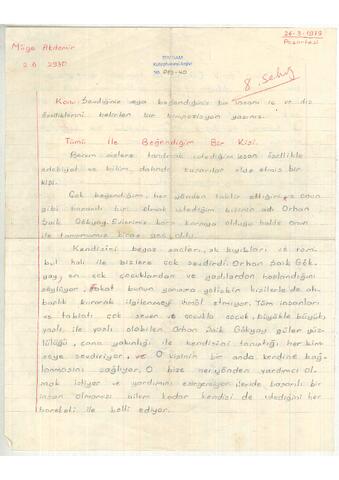 Müge Akdemir
2-B 2930
26-3-1979
Pazartesi
Konu: Sevdiğiniz veya beğendiğiniz bir insanı iç ve dış
özelliklerini belirten bir kompozisyon yazınız.
Tümü İle Beğendiğim Bir Kişi.
Benim sizlere tanıtmak istediğim insan özellikle
edebiyat ve bilim dalında başarılar elde etmiş bir
kişi.
Çok beğendiğim, her yönden takdir ettiğim ve onun
gibi başarılı bir olmak istediğim kişinin adı Orhan
Şaik Gökyay. Evlerimiz karşı karşıya olduğu halde onun
ile tanışmamız biraz geç oldu.
Kendisini beyaz saçları, ak bıyıkları ve
hali ile bizlere çok sevdirdi. Orhan Şaik Gök-
yay, en çok çocuklardan ve yaşlılardan hoşlandığını
söylüyor, fakat bunun yanısıra yetişkin kişilerle de ah-
baplık kurarak ilgilenmeyi ihmâl etmiyor. Tüm insanları
ve tabiatı çok seven ve çocukla çocuk, büyükle büyük,
yaşlı ile yaşlı olabilen Orhan Şaik Gökyay güler yüz-
lülüğü, cana yakınlığı ile kendisini tanıştığı her kim-
seye sevdiriyor, ve o kişinin bir anda kendine bağ-
lanmasını sağlıyor. O bize her yönden yardımcı ol-
mak istiyor ve yardımını esirgemiyor. İleride başarılı bir
insan olmamızı bizler kadar kendisi de istediğini her
hareketi ile belli ediyor.